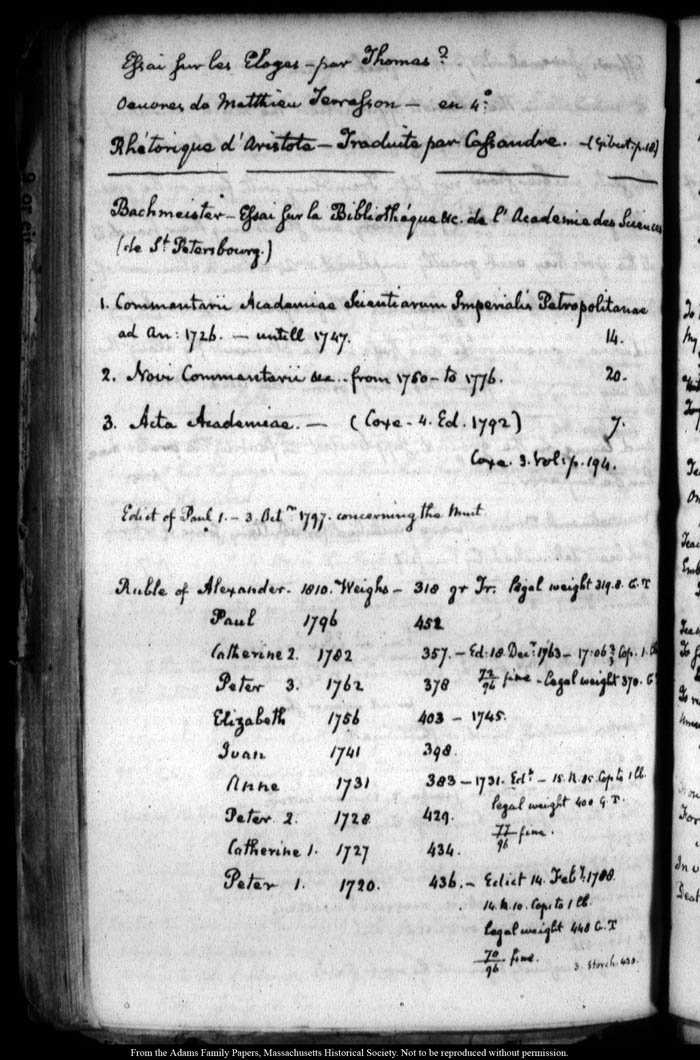 Essai sur les Eloges – par Thomas?
Oeuvres de Matthieu Terrasson – en 4°.
Rhétorique d'Aristote – Traduite par Cassandre. – (Gibert. p. 18)
Bachmeister – Essai sur la Bibliothéque &c. de l'Academie des Sciences
(de St. Petersbourg.)
1. Commentarii Academiae Scientiarum Imperialis Petropolitanae
ad An: 1726. – untill 1747. 14.
2. Novi Commentarii &c. . from 1750 – to 1776. 20.
3. Acta Academiae. – (Coxe – 4. Ed. 1792) 7.
Coxe. 3. Vol: p. 194.
Edict of Paul 1. – 3. Octr. 1797. concerning the Mint.
Ruble of Alexander. 1810. Weighs – 318 gr Tr. legal weight 319.8. G. T
Paul 1796 452.
Catherine 2. 1782 357. – Ed: 18. Decr. 1763 – 17:06 2/3 Cop. 1. lb
Peter 3. 1762 378 72/96 fine – Legal weight 370. G
Elizabeth 1756 403 – 1745.
Ivan 1741 398.
Anne 1731 383 – 1731. Edt. – 15. R. 85. Cop. to 1 lb.
legal weight 400 G. T.
Peter 2. 1728 429.
77/96 fine.
Catherine 1. 1727 434.
Peter 1. 1720. 436. – Edict 14. Feby. 1788.
14. R. 10. Cop. to 1 lb.
legal weight 448 G. T
70/96 fine. 3. Storch. 430.
From the Adams Family Papers, Massachusetts Historical Society. Not to be reproduced without permission.